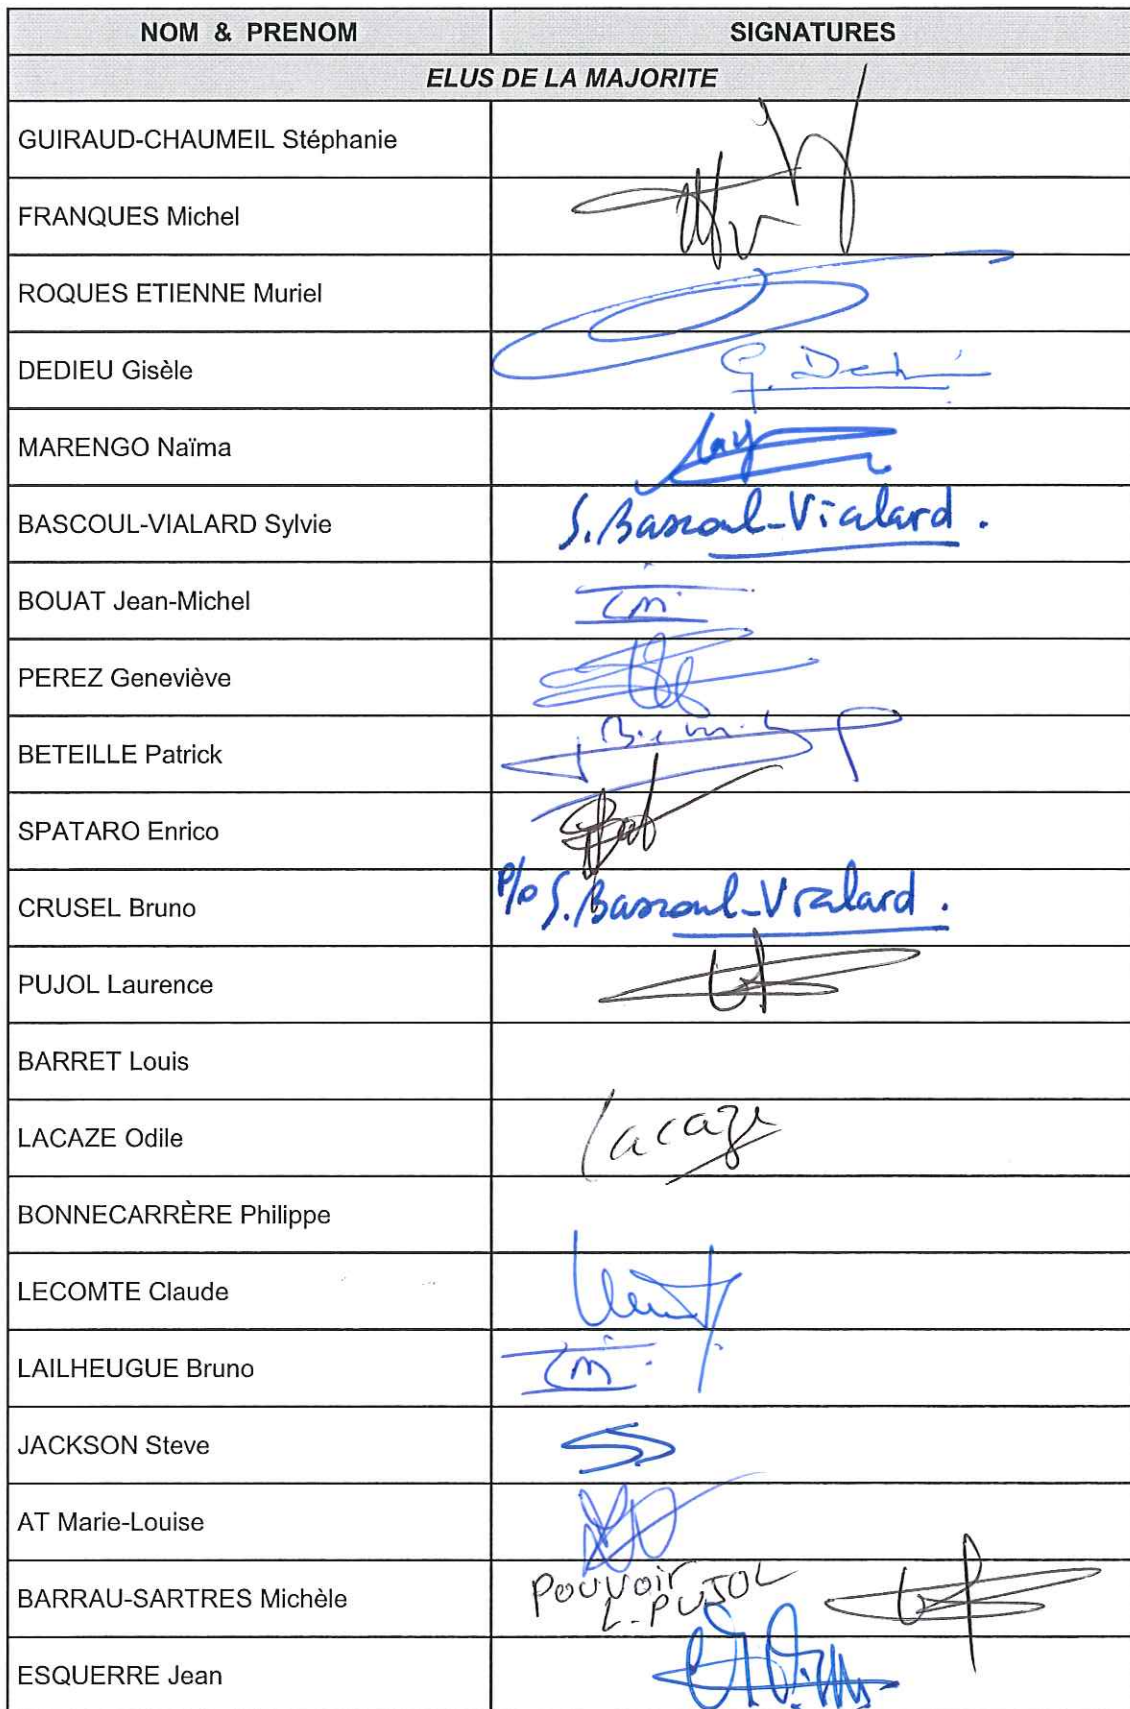 NOM & PRENOM SIGNATURES
ELUS DE LA MAJORITE
GUIRAUD-CHAUMEIL Stéphanie
FRANQUES Michel
ROQUES ETIENNE Muriel
DEDIEU Gisèle G. Dedieu
MARENGO Naïma
BASCOUL-VIALARD Sylvie S. Bascoul-Vialard.
BOUAT Jean-Michel
PEREZ Geneviève
BETEILLE Patrick
SPATARO Enrico
CRUSEL Bruno P/o S. Bascoul-Vialard.
PUJOL Laurence
BARRET Louis
LACAZE Odile Lacaze
BONNECARRÈRE Philippe
LECOMTE Claude
LAILHEUGUE Bruno
JACKSON Steve
AT Marie-Louise
BARRAU-SARTRES Michèle Pouvoir
L-PUJOL
ESQUERRE Jean